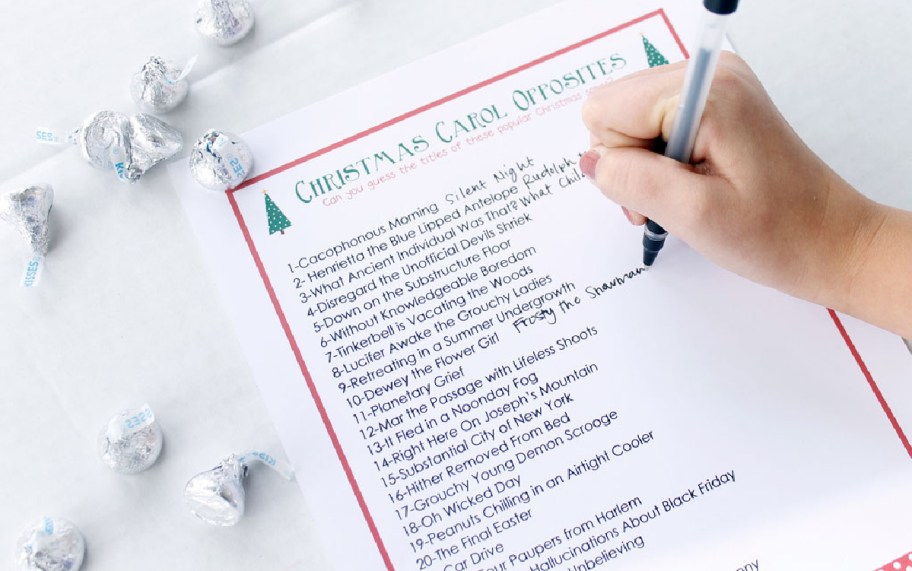 CHRISTMAS CAROL OPPOSITES
Can you guess the titles of these popular Christmas
1-Cacophonous Morning Silent Night
2- Henrietta the Blue Lipped Antelope Rudolph
3-What Ancient Individual Was That? What Chil
4-Disregard the Unofficial Devils Shriek
5-Down on the Substructure Floor
6-Without Knowledgeable Boredom
7-Tinkerbell is Vacating the Woods
8-Lucifer Awake the Grouchy Ladies
9-Retreating in a Summer Undergrowth
10-Dewey the Flower Girl Frosty the Snowman
11-Planetary Grief
12-Mar the Passage with Lifeless Shoots
13-It Fled in a Noonday Fog
14-Right Here On Joseph's Mountain
15-Substantial City of New York
16-Hither Removed From Bed
17-Grouchy Young Demon Scrooge
18-Oh Wicked Day
19-Peanuts Chilling in an Airtight Cooler
20-The Final Easter
Car Drive
Four Paupers from Harlem
Hallucinations About Black Friday
Unbelieving
KISSES